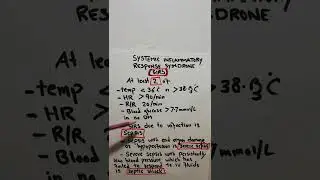 SYSTEMIC INFLAMMATORY
RESPONSE SYNDROME
(SIRS)
At least 2 of
- temp < 36°C or > 38.3°C
- HR > 90/min
- R/R 20/min
- Blood glucose > 7.7 mmol/L
in no DM
SIRS due to infection is
SEPSIS
with end organ damage
or hypoperfusion is Severe sepsis
- Severe sepsis with persistently
low blood pressure which has
failed to respond to iv fluids
is septic shock